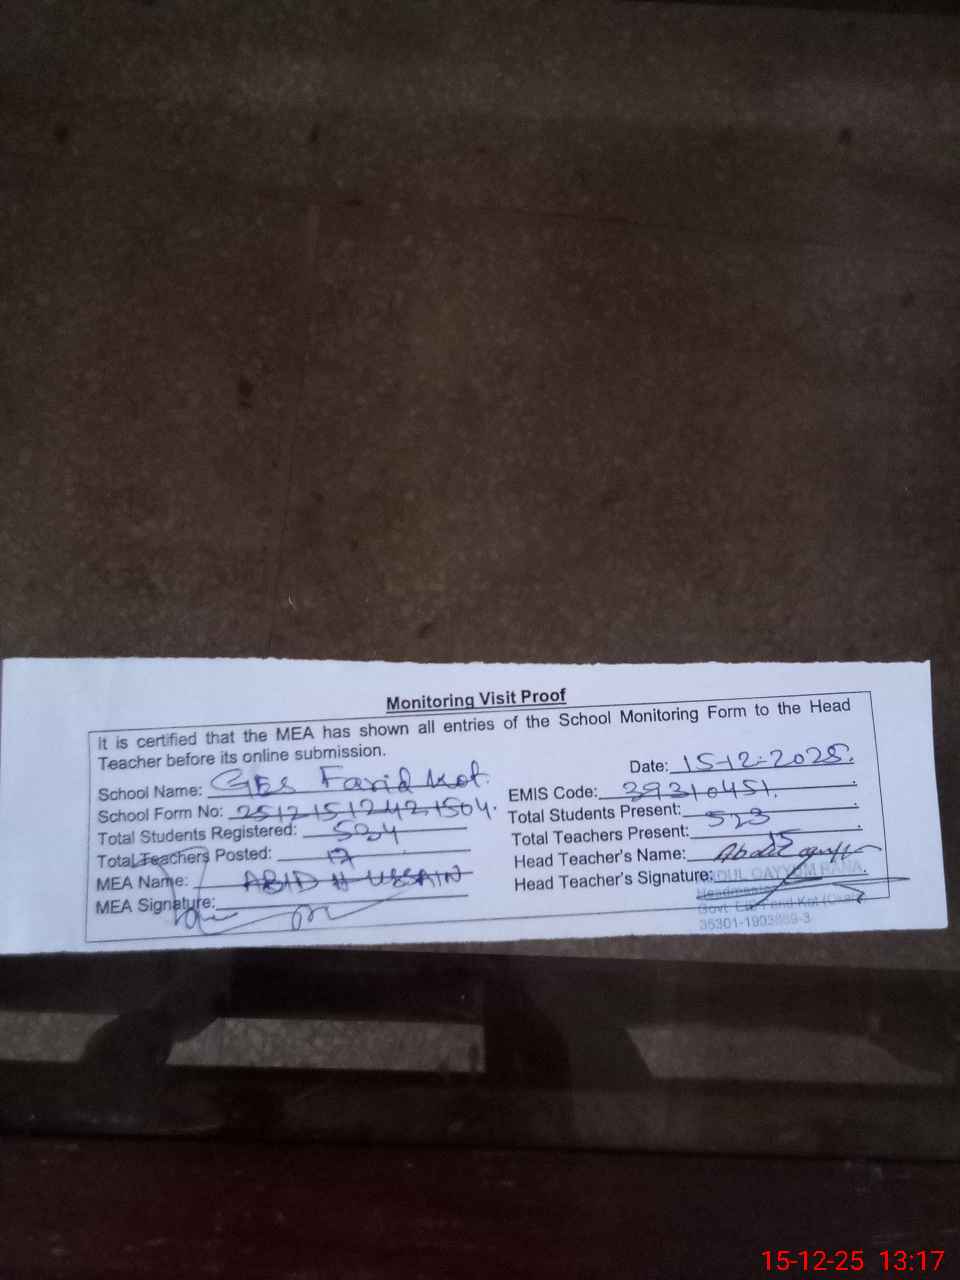 Monitoring Visit Proof
It is certified that the MEA has shown all entries of the School Monitoring Form to the Head
Teacher before its online submission.
Date: 15-12-2025.
School Name: GES Farid Kot.
EMIS Code: 39310451.
School Form No: 2512151242 1504.
Total Students Present: 523
Total Students Registered: 534
Total Teachers Present: 15
Total Teachers Posted: 17
Head Teacher's Name: Abdul Qayyum
MEA Name: ABID HUSSAIN
Head Teacher's Signature:
MEA Signature:
ABDUL QAYYUM RANA
Headmaster
Govt.
15-12-25 13:17